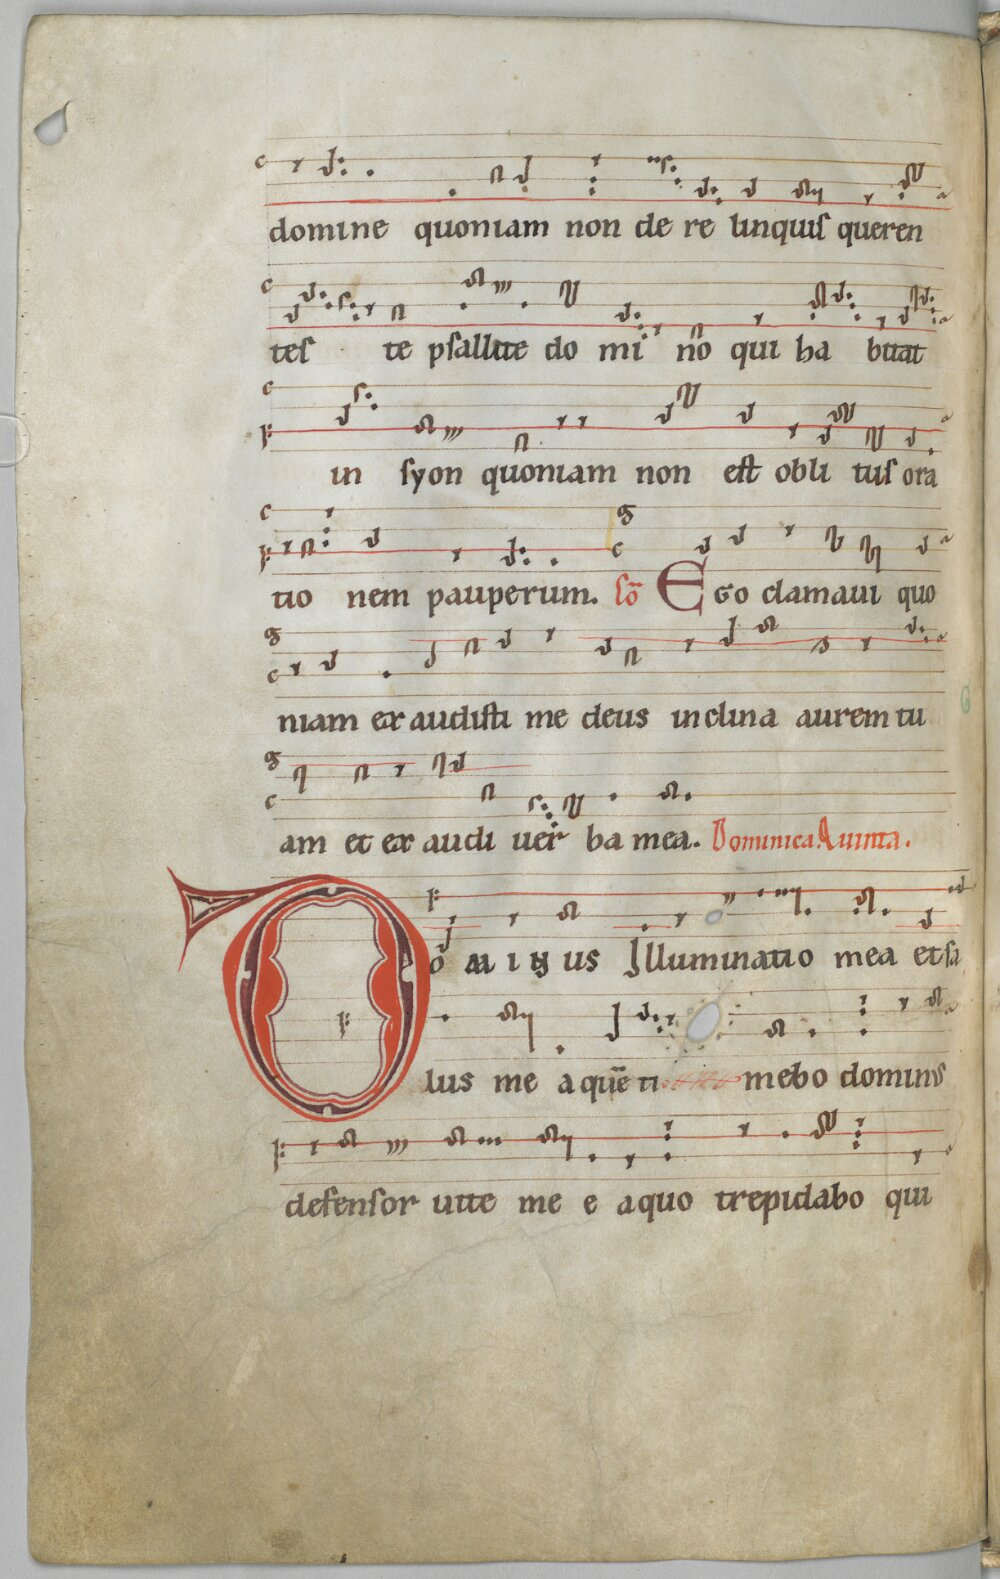 domine quoniam non de re linquis queren
tes te psallite do mi no qui ha bitat
in syon quoniam non est obli tus ora
tio nem pauperum. Cō EGo clamaui quo
niam ex audisti me deus inclina aurem tu
am et ex audi uer ba mea. Dominica Quinta.
Dominus Illuminatio mea et sa
lus mea quē ti mebo dominus
defensor uite me e a quo trepidabo qui